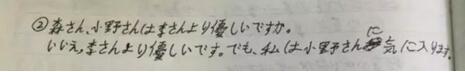 ②森さん、小野さんは李さんより優しいですか。
いいえ、李さんより優しいです。でも、私は小野さんに気に入ります。